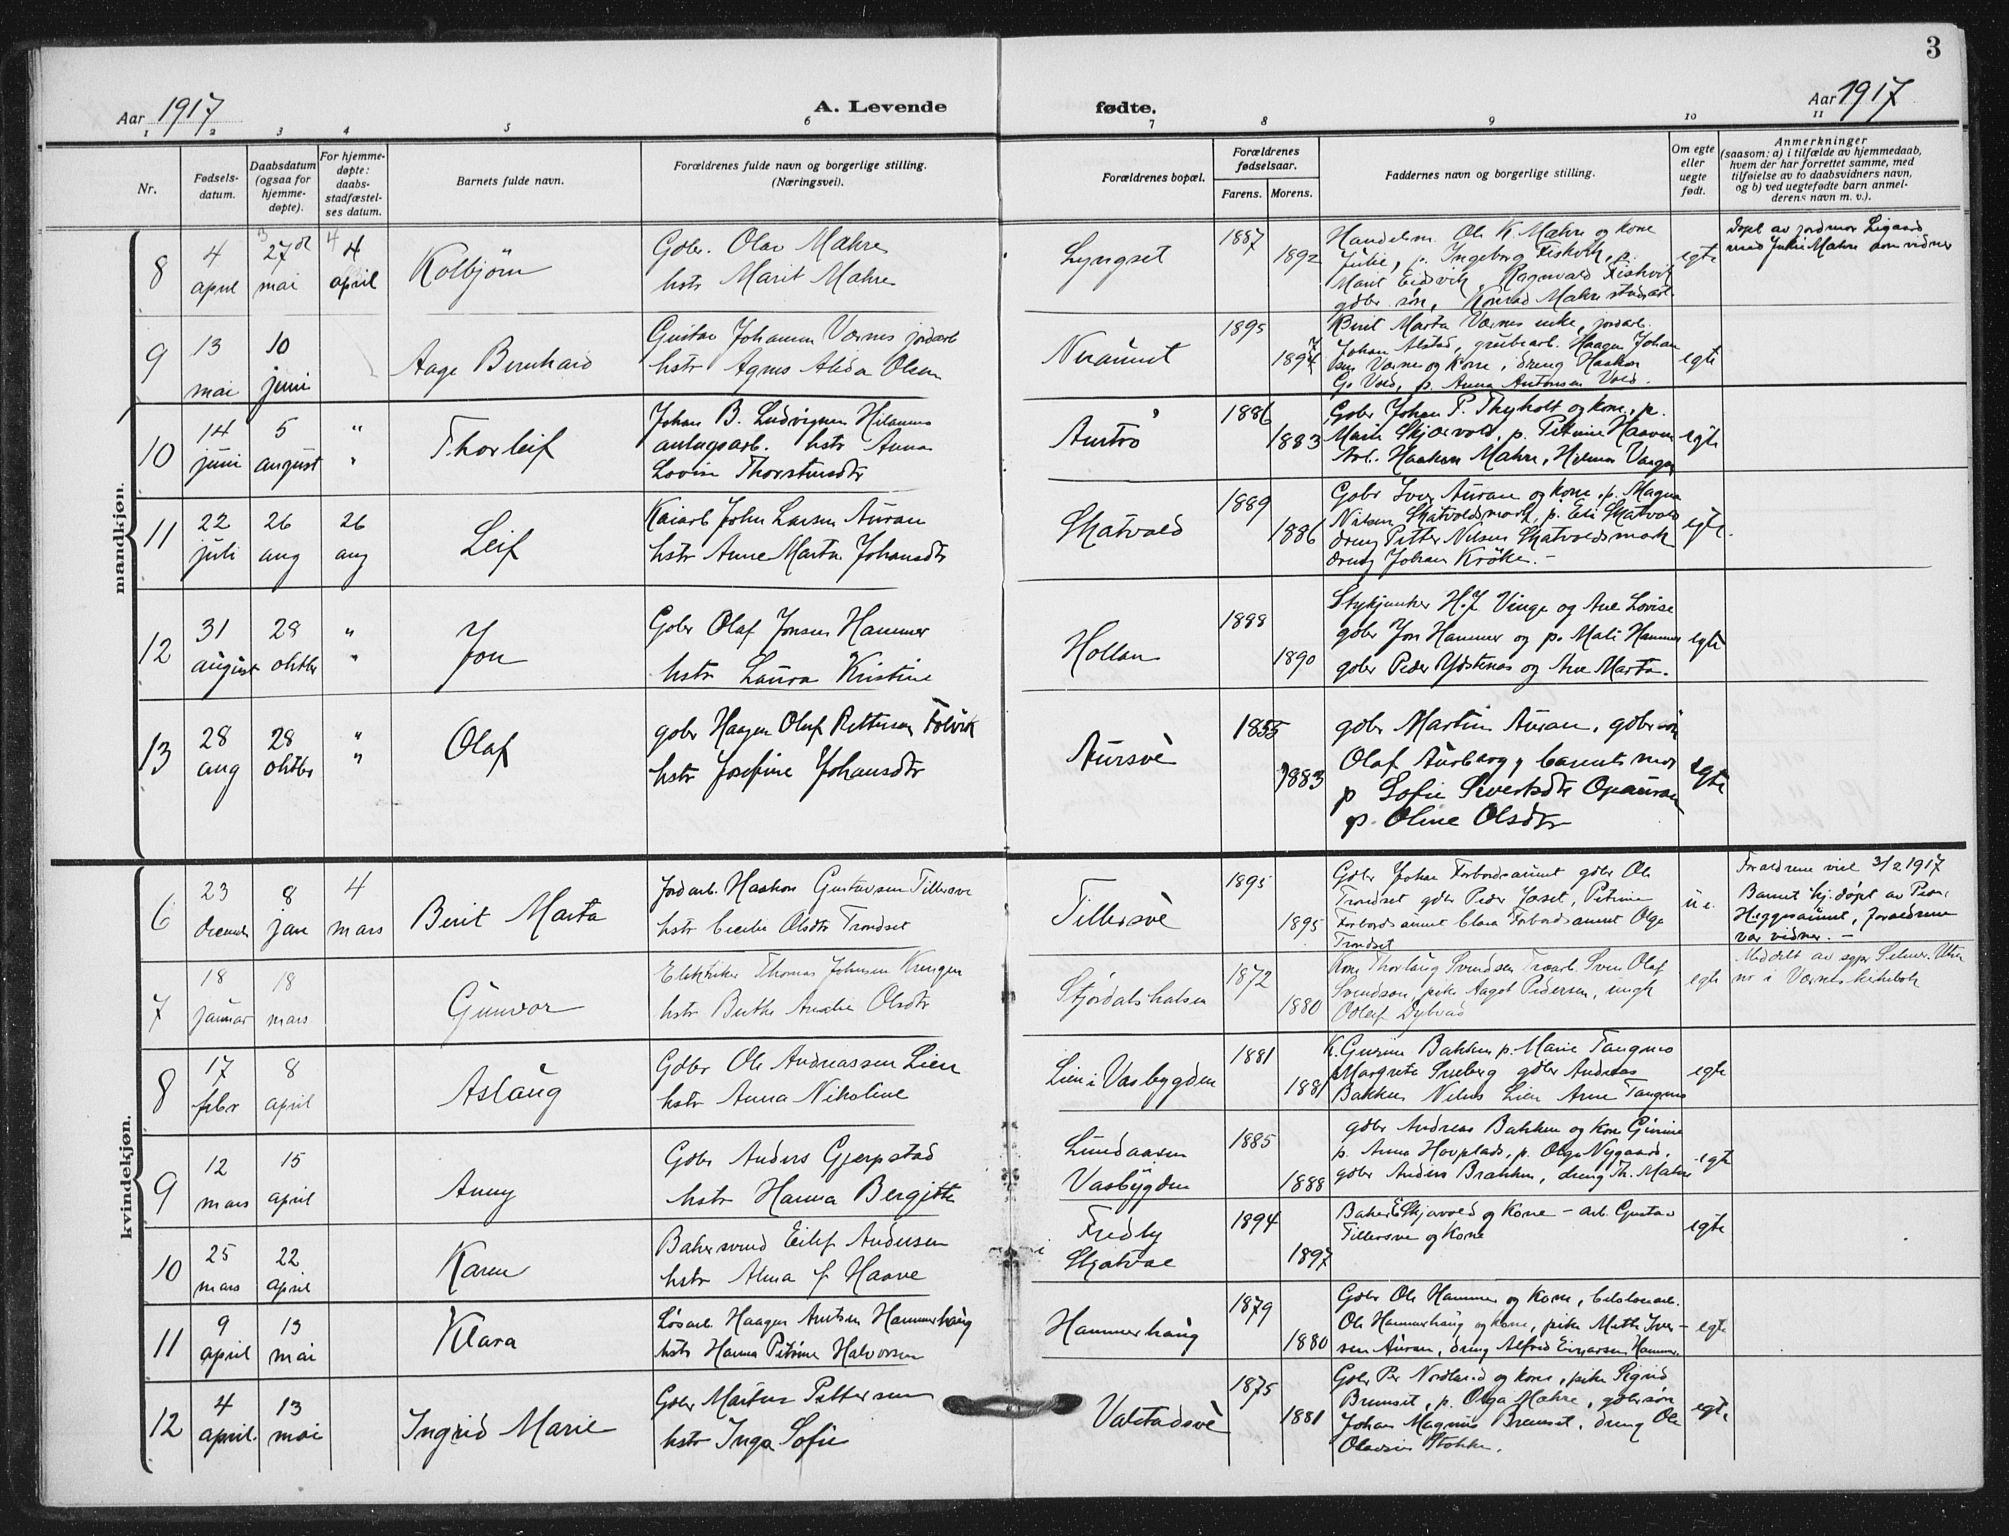 3
Aar 1917
A. Levende
fødte.
Aar 1917
1 2 3 4 5 6 7 8 9 10 11
Nr.
Fødsels-
datum.
Daabsdatum
(ogsaa for
hjemme-
døpte).
For hjemme-
døpte:
daabs-
stadfæstel-
ses datum.
Barnets fulde navn.
Forældrenes fulde navn og borgerlige stilling.
(Næringsvei).
Forældrenes bopæl.
Forældrenes
fødselsaar.
Farens. Morens.
Faddernes navn og borgerlige stilling.
Om egte
eller
uegte
født.
Anmerkninger
(saasom: a) i tilfælde av hjemmedaab,
hvem der har forrettet samme, med
tilføielse av to daabsvidners navn,
og b) ved uegtefødte barn anmel-
derens navn m. v.).
mandkjøn.
8
4
april
27
mai
4
april
Kolbjörn
Gbr. Olav Mahre
hstr Marit Mahre
Lyngset
1887
1892
Handelsm. Ole K. Mahre og kone
Julie, p. Ingeborg Fiskvik, p.
Marit Eidsvik, Ragnvald Fiskvik
gdbr søn, Konrad Mahre
egte
Døpt av jordmor
med Julie Mahre som vidner
9
13
mai
10
juni
Aage Bernhard
Gustav Johansen Værnes jordarb
hstr Agnes Alida Olsen
1895
1894
Berit Marta Værnes enke, jordarb.
Johan Alstad, grubearb. Haagen Johan
sen Værnes og kone, dreng Haakon
G. Vold, p. Anna Antonsen Vold.
egte
10
14
juni
5
august
"
"
Thorleif
Johan B. Ludvigsen
anlægsarb. hstr Anna
Lovise Thorstensdtr
Auströ
1886
1883
Gbr Johan P. Thyholt og kone, p.
Marit Skjærvold, p. Petrine Haaven
Arb. Haakon Mahre, Helmer
egte
11
22
juli
26
aug
26
aug
Leif
Kaiarb John Larsen Auran
hstr Anne Marta Johansdtr
Skatvold
1889
1886
Gbr Iver Auran og kone, p. Magna
Nilsen Skatvoldsmark, p. Eli Skatvold
dreng Petter Nilsen Skatvoldsmark
dreng Johan Kröken. –
egte.
12
31
august
28
oktbr
"
"
Jon
Gbr Olaf Jonsen Hammer
hstr Laura Kristine
Hollan
1888
1890
Stykjunker H. J. Vinge og Ane Lovise
gdbr Jon Hammer og p. Mali Hammer
gdbr Peder Ydstenes og Ane Marta.
egte
13
28
aug
28
oktbr
"
"
Olaf
gdbr Haagen Oluf Pettersen
hstr Josefine Johansdtr
Aursve
1855
1883
gdbr Martin Auran, gdbr søn
Olaf Aurberg, barnets mor
p Sofie Sivertsdtr Opauran
p. Oline Olsdtr
egte
kvindekjøn.
6
23
8
jan
4
mars
Berit Marta
Jordarb. Haakon Gustavsen Tillersve
hstr Cecilie Olsdtr Trondset
Tillersve
1895
1895
Gbr Johan Forbordsaunet gdbr Ole
Trondset gdbr Peder Petrine
Forbordsaunet Clara Forbordsaunet Olga
Trondset
u e.
Forældrene viet 3/2 1917
Barnet hj. døpt av Peder
Heggesaunet, forældrene
var vidner. –
7
18
januar
18
mars
Gunvor
Elektriker Thomas Johnsen
hstr Berthe Amalie Olsdtr
Stjördalshalsen
1872
1880
Kone Thorlaug Svendsen Sven Olaf
Svendsen, pike Aagot Pedersen, ungk
Oddleif Dybvad
egte
Meddelt av sgpr Selmer.
nr i Værnes kirkebok
8
17
febr
8
april
Aslaug
Gdbr Ole Andreassen Lien
hstr Anna Nikoline
Lien i Vasbygden
1881
1881
K. Gurine Bakken p. Marie Tangmo
Margrete gdbr Andreas
Bakken Nikols Lien Arne Tangmo
egte
9
12
mars
15
april
Anny
Gdbr Anders Gjerpstad
hstr Hanna Bergitte
Lundaasen
Vasbygden
1885
1888
gdbr Andreas Bakken og kone Gurine
p. Anna Hovplads, p. Olga Nygaard,
gdbr Anders Brakken, dreng Th. Mahre
egte
10
25
mars
22
april
Karen
Bakersvend Eilif Andersen
hstr Alma f Haave
Fredly
i Skatval
1894
1897
Baker E Skjervold og kone – arb. Gustav
Tillersve og kone
egte
11
9
april
13
mai
Klara
Løsarb Haagen Antsen Hammerhaug
hstr Hanna Petrine Halvorsen
Hammerhaug
1879
1880
Gdbr Ole Hammer og kone,
Ole Hammerhaug og kone, pike Mette Iver–
sen Auran, dreng Alfred Einarsen Hammer.
egte
12
4
april.
13
mai
Ingrid Marie
Gdbr Martin Pettersen
hstr Inga Sofie
Valstadsve
1875
1881
Gdbr Per Nordland og kone, pike Sigrid
Bremset, p. Olga Mahre, gdbrsøn
Johan Magnus Bremset, dreng Ole
Olavsen Stokke.
egte